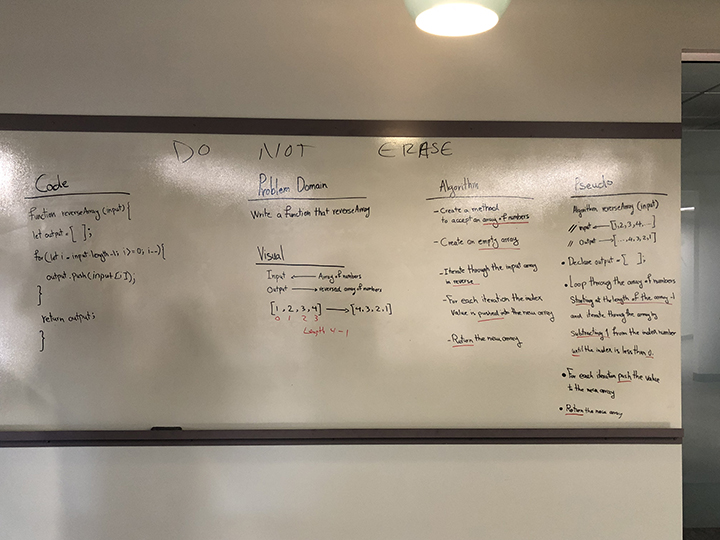 DO NOT ERASE
Code
function reverseArray (input) {
let output = [ ];
for (let i = input.length-1; i >= 0; i--) {
output.push(input[i]);
}
return output;
}
Problem Domain
Write a function that reverseArray
Visual
Input Array of numbers
Output reversed array of numbers
[1, 2, 3, 4] → [4, 3, 2, 1]
0 1 2 3
Length 4 - 1
Algorithm
- Create a method
to accept an array of numbers
- Create an empty array
- Iterate through the input array
in reverse
- For each iteration the index
value is pushed into the new array
- Return the new array
Pseudo
Algorithm reverseArray (input)
// input [1, 2, 3, 4, ...]
// Output → [..., 4, 3, 2, 1]
• Declare output = [ ];
• Loop through the array of numbers
Starting at the length of the array -1
and iterate the array by
subtracting 1 from the index number
until the index is less than 0.
• For each iteration push the value
to the new array
• Return the new array